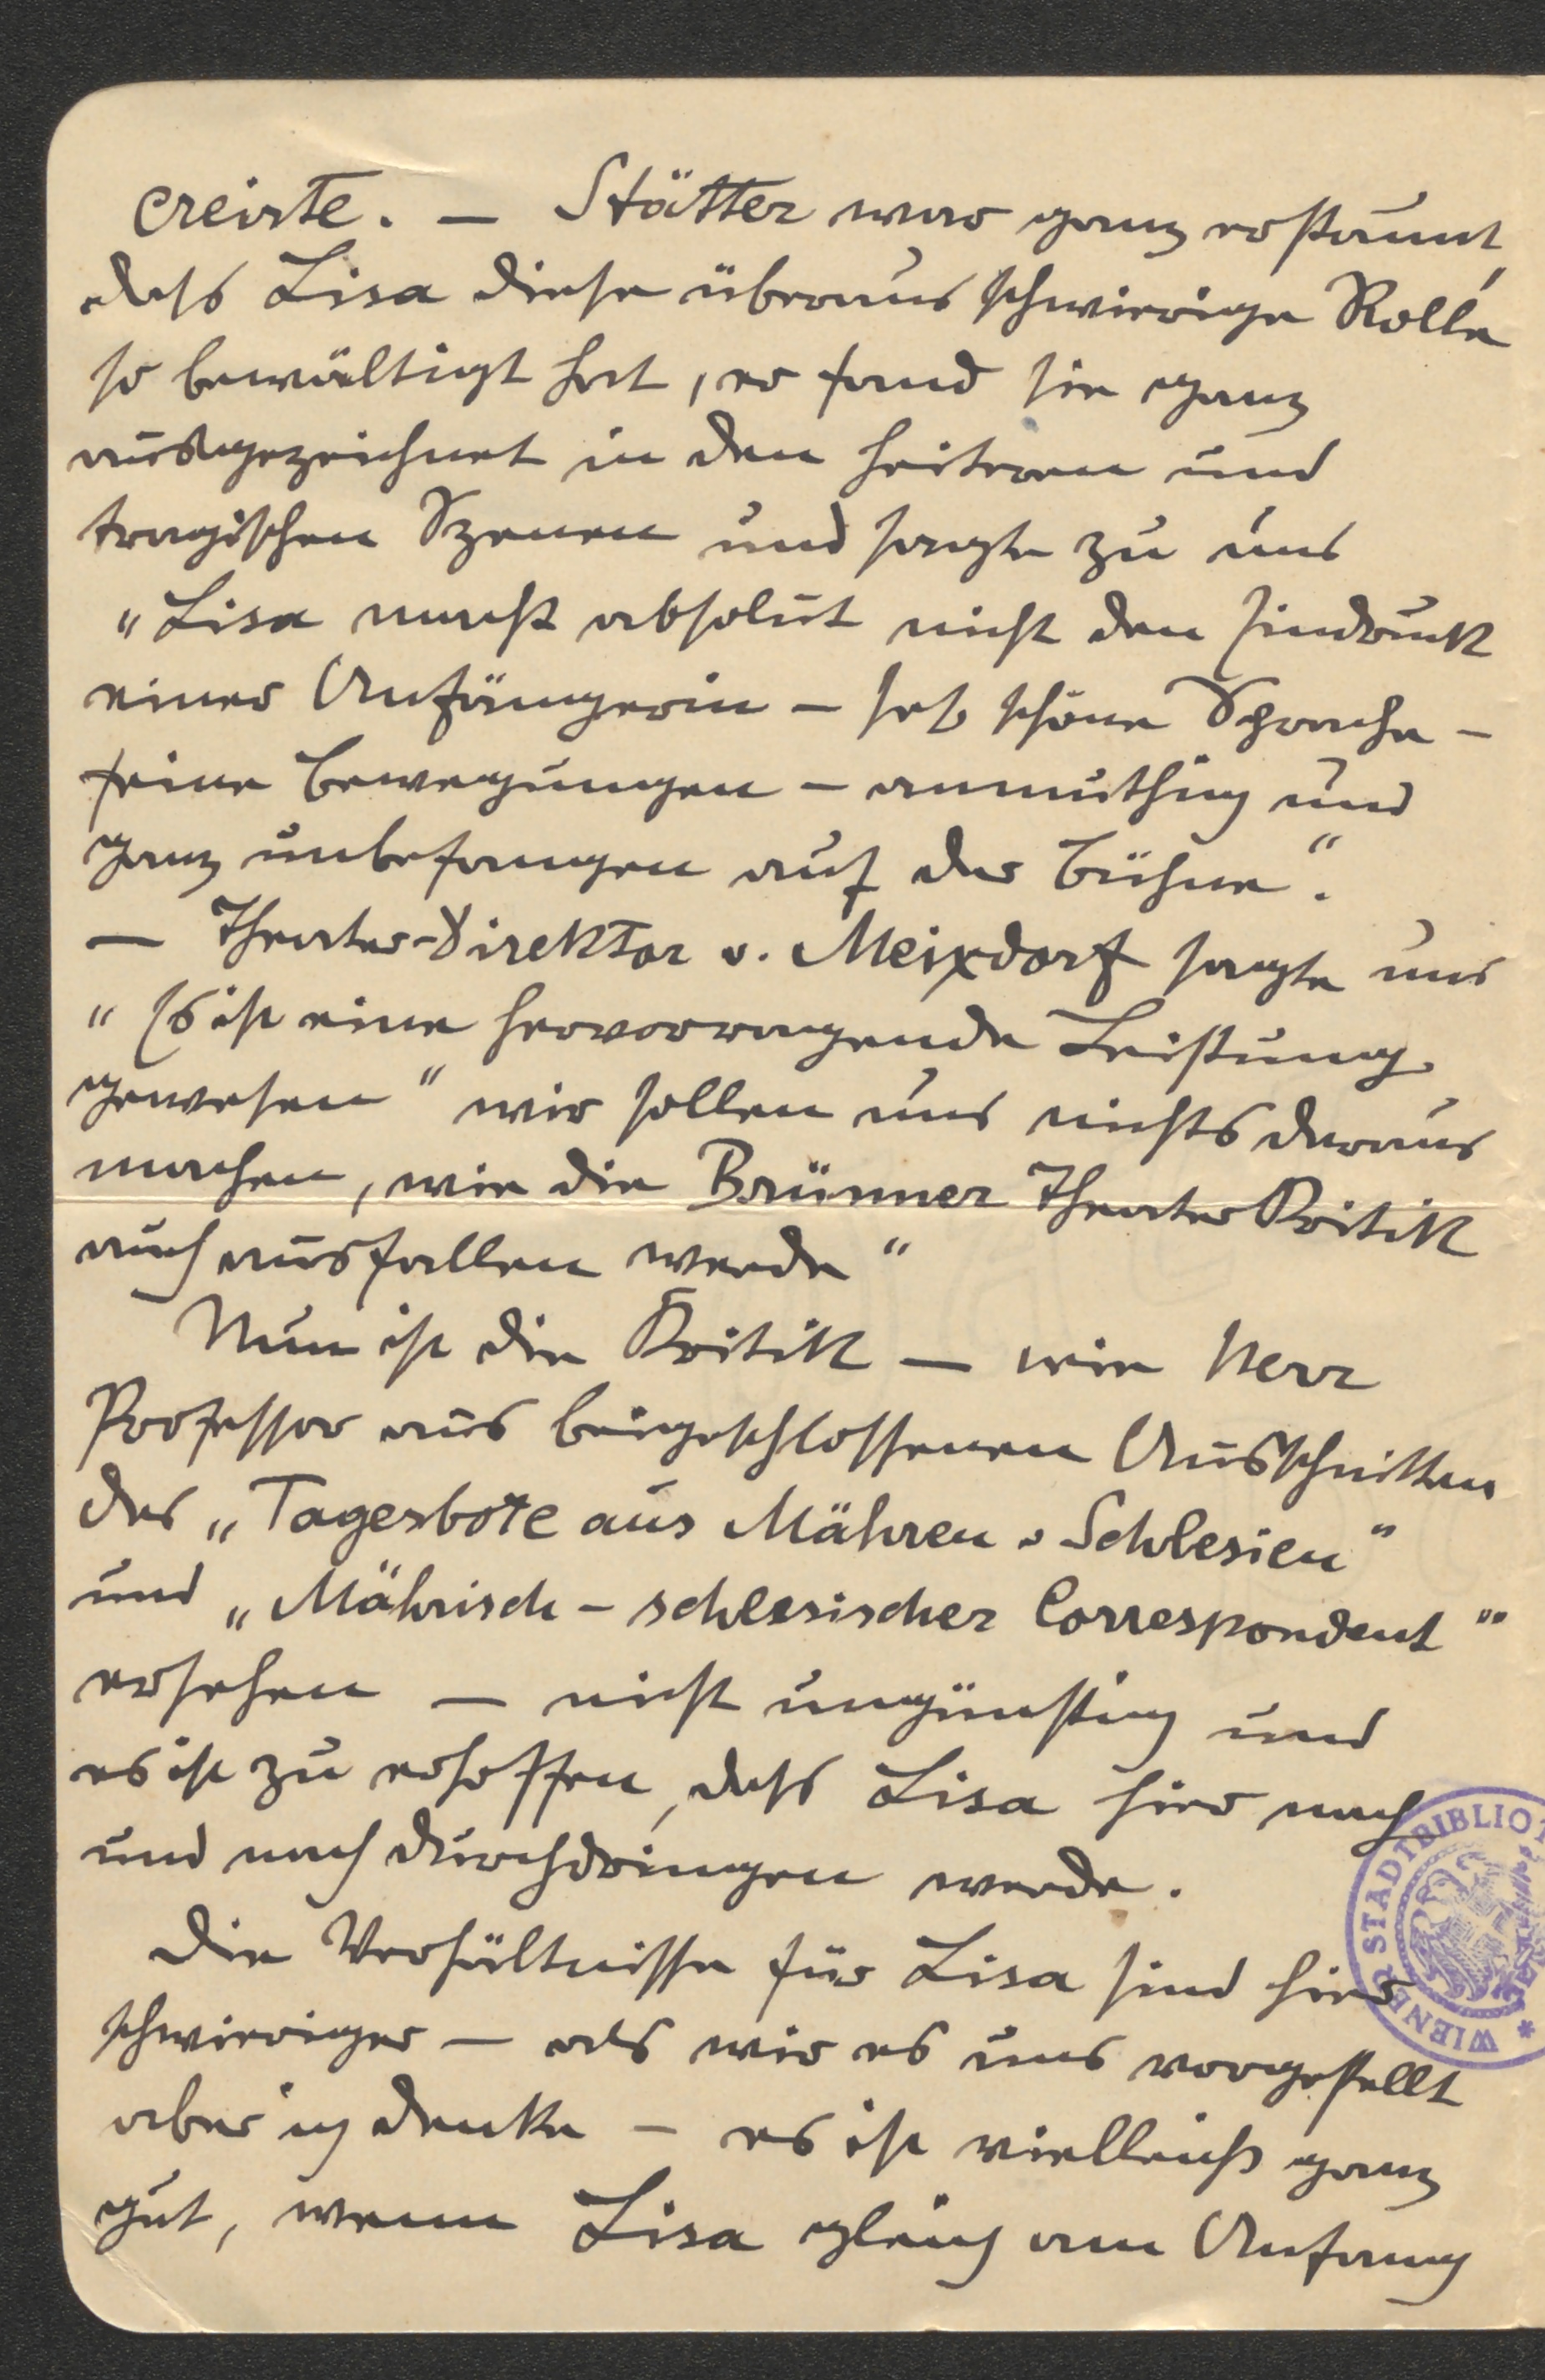 creirte. — Stätter war ganz erstaunt,
dass Lisa diese überaus schwierige Rolle
so bewältigt hat, er fand sie ganz
ausgezeichnet in den heiteren und
tragischen Szenen und sagte zu uns
"Lisa macht absolut nicht den Eindruck
einer Anfängerin – hat schöne Sprache –
feine Bewegungen – anmuthig und
ganz unbefangen auf der Bühne".
— Theater-Direktor v. Meixdorf sagte uns
"Es ist eine hervorragende Leistung
gewesen" wir sollen uns nichts daraus
machen, wie die Brünner Theater Kritik
auch ausfallen werde"
Nun ist die Kritik — wie Herr
Professor aus beigeschlossenen Ausschnitten
des „Tagesbote aus Mähren u Schlesien"
und „Mährisch-schlesischer Correspondent"
ersehen — nicht ungünstig und
es ist zu erhoffen, dass Lisa hier nach
und nach durchdringen werde.
Die Verhältnisse für Lisa sind hier
schwieriger — als wir es uns vorgestellt
aber ich denke – es ist vielleicht ganz
gut, wenn Lisa gleich am Anfang
WIENER STADTBIBLIOT